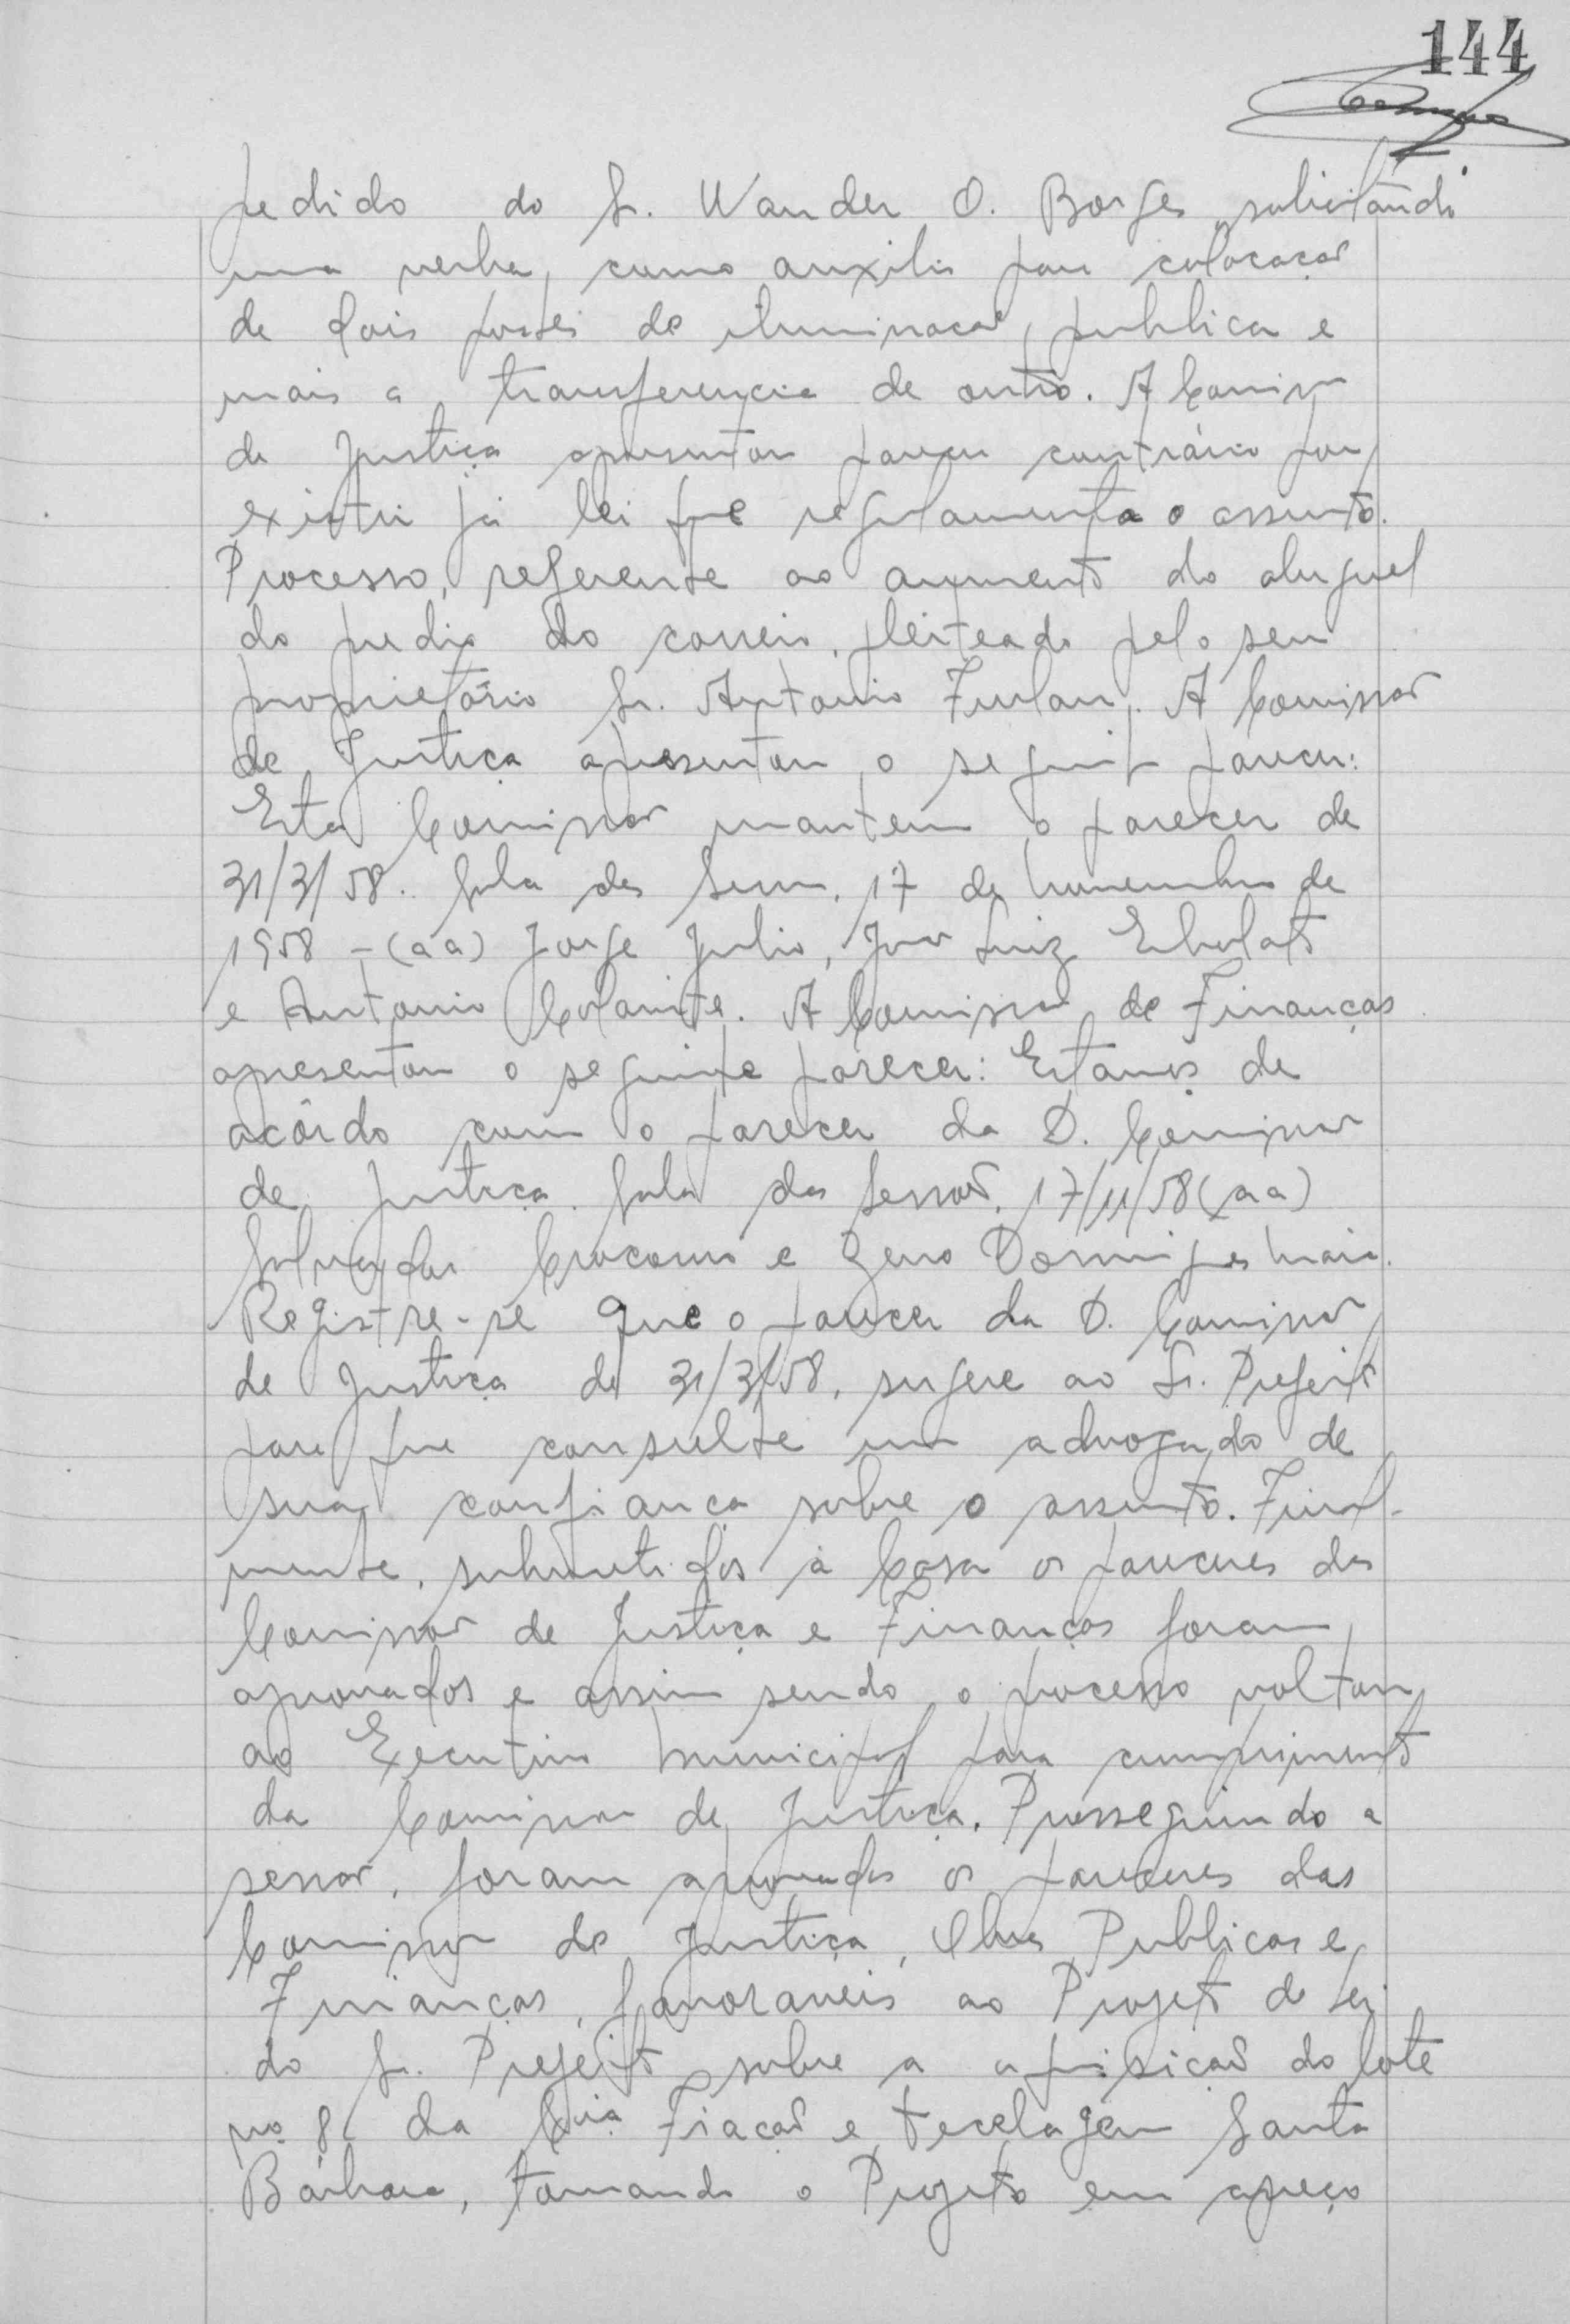 144
pedido do Sr. Wander O. Borges, solicitando
uma verba, como auxilio para colocação
de dois postes de iluminação publica e
mais a transferencia de outro. A Comissão
de Justiça apresentou parecer contrário por
existir já lei que regulamenta o assunto.
Processo, referente ao aumento do aluguel
do predio do correio, pleiteado pelo seu
proprietário Sr. Antonio Furlan. A Comissão
de Justiça apresentou o seguinte parecer:
Esta Comissão mantem o parecer de
31/3/58. Sala das Sessões, 17 de novembro de
1958 - (aa) Jorge Julio, João Luiz
e Antonio. A Comissão de Finanças
apresentou o seguinte parecer: Estamos de
acôrdo com o parecer da D. Comissão
de Justiça. Sala das Sessões, 17/11/58 (aa)
e Zeno Domingues Maia.
Registre-se que o parecer da D. Comissão
de Justiça de 31/3/58, sugere ao Sr. Prefeito
para que consulte um advogado de
sua confiança sobre o assunto. Final-
mente, submetidos à Casa os pareceres das
Comissões de Justiça e Finanças foram
aprovados e assim sendo o processo voltou
ao Executivo Municipal para cumprimento
da Comissão de Justiça. Prosseguindo a
sessão, foram aprovados os pareceres das
Comissões de Justiça, Obras Publicas e
Finanças, favoraveis ao Projeto de Lei
do Sr. Prefeito sobre a aquisição do lote
nº 8 da Cia Fiação e Tecelagem Santa
Bárbara, tomando o Projeto em apreço